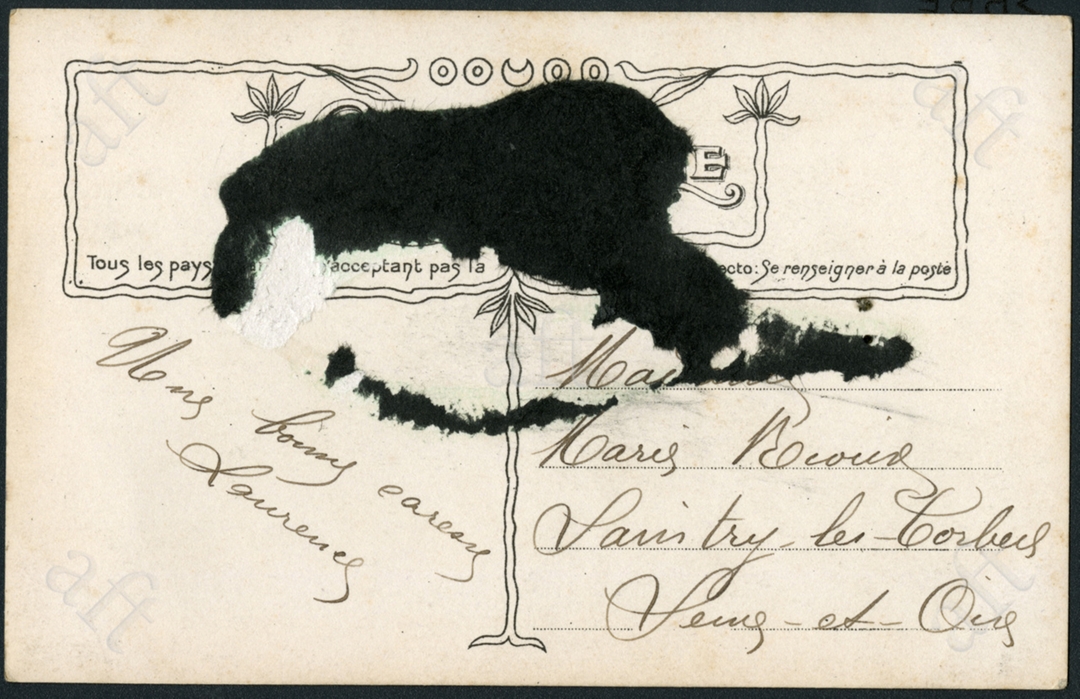 E
Tous les pays acceptant pas la ecto: Se renseigner à la poste
Mes bons caresses
Laurence
Marie
Saintry les-Corbeil
Seine-et-Oise
aft
aft
aft
aft
aft